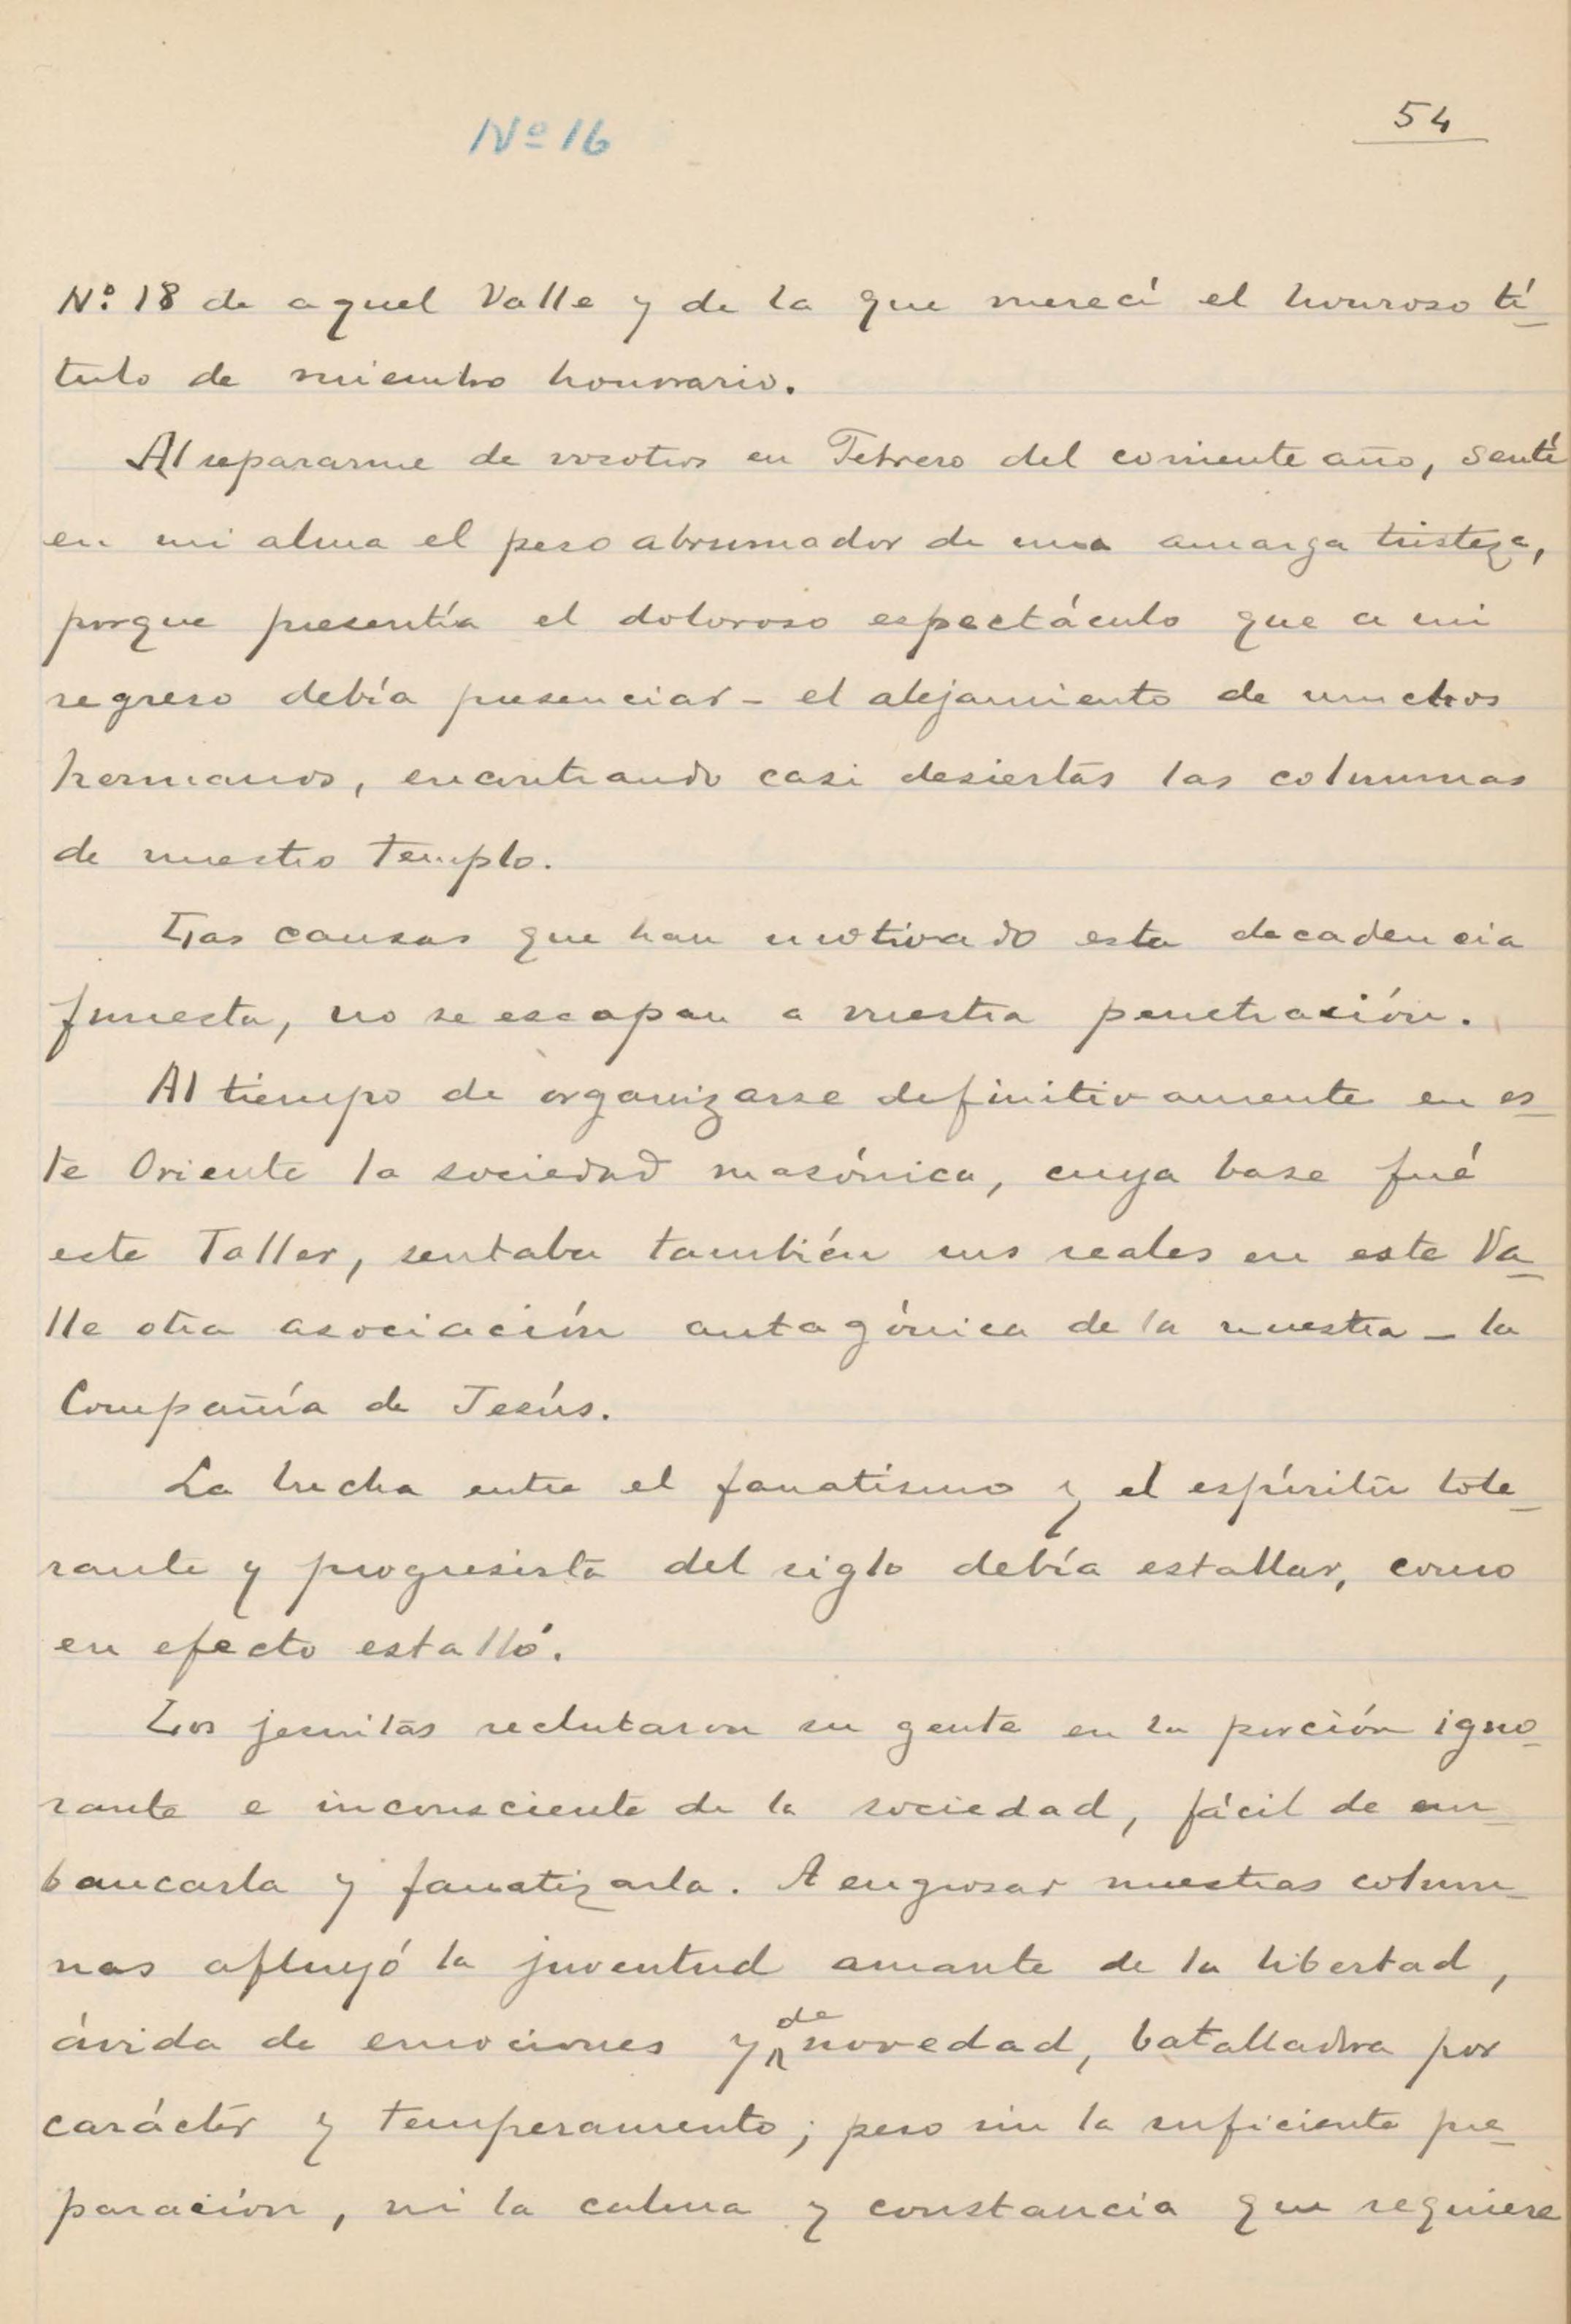 Nº 16
54
Nº 18 de aquel Valle y de la que merecí el honroso tí-
tulo de miembro honorario.
Al separarme de vosotros en Febrero del corriente año, sentí
en mi alma el peso abrumador de una amarga tristeza,
porque presentía el doloroso espectáculo que a mi
regreso debía presenciar - el alejamiento de muchos
hermanos, encontrando casi desiertas las columnas
de nuestro templo.
Las causas que han motivado esta decadencia
funesta, no se escapan a vuestra penetración.
Al tiempo de organizarse definitivamente en es-
te Oriente la sociedad masónica, cuya base fué
este Taller, sentaba también sus reales en este Va-
lle otra asociación antagónica de la nuestra - la
Compañía de Jesús.
La lucha entre el fanatismo y el espíritu tole-
rante y progresista del siglo debía estallar, como
en efecto estalló.
Los jesuitas reclutaron su gente en la porción igno-
rante e inconsciente de la sociedad, fácil de em-
baucarla y fanatizarla. A engrosar nuestras colum-
nas afluyó la juventud amante de la libertad,
ávida de emociones y de novedad, batalladora por
carácter y temperamento; pero sin la suficiente pre-
paración, ni la calma y constancia que requiere